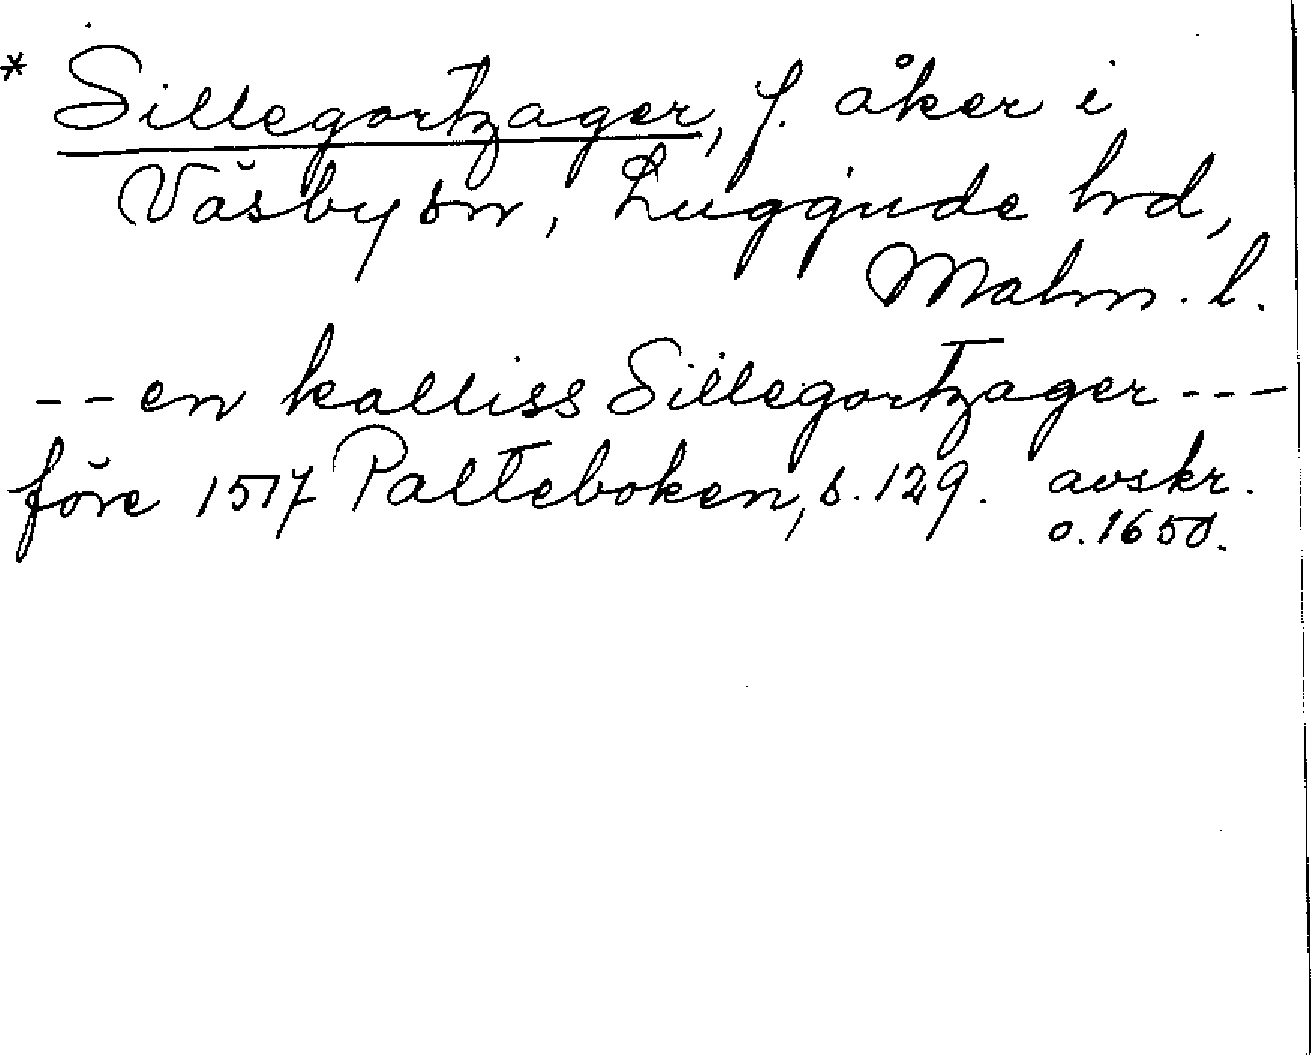 * Sillegortzager, f. åker i
Väsby sn, Luggude hd,
Malm. l.
-- en kalliss Sillegortzager ---
före 1517 Palteboken, s. 129. avskr.
o. 1650.